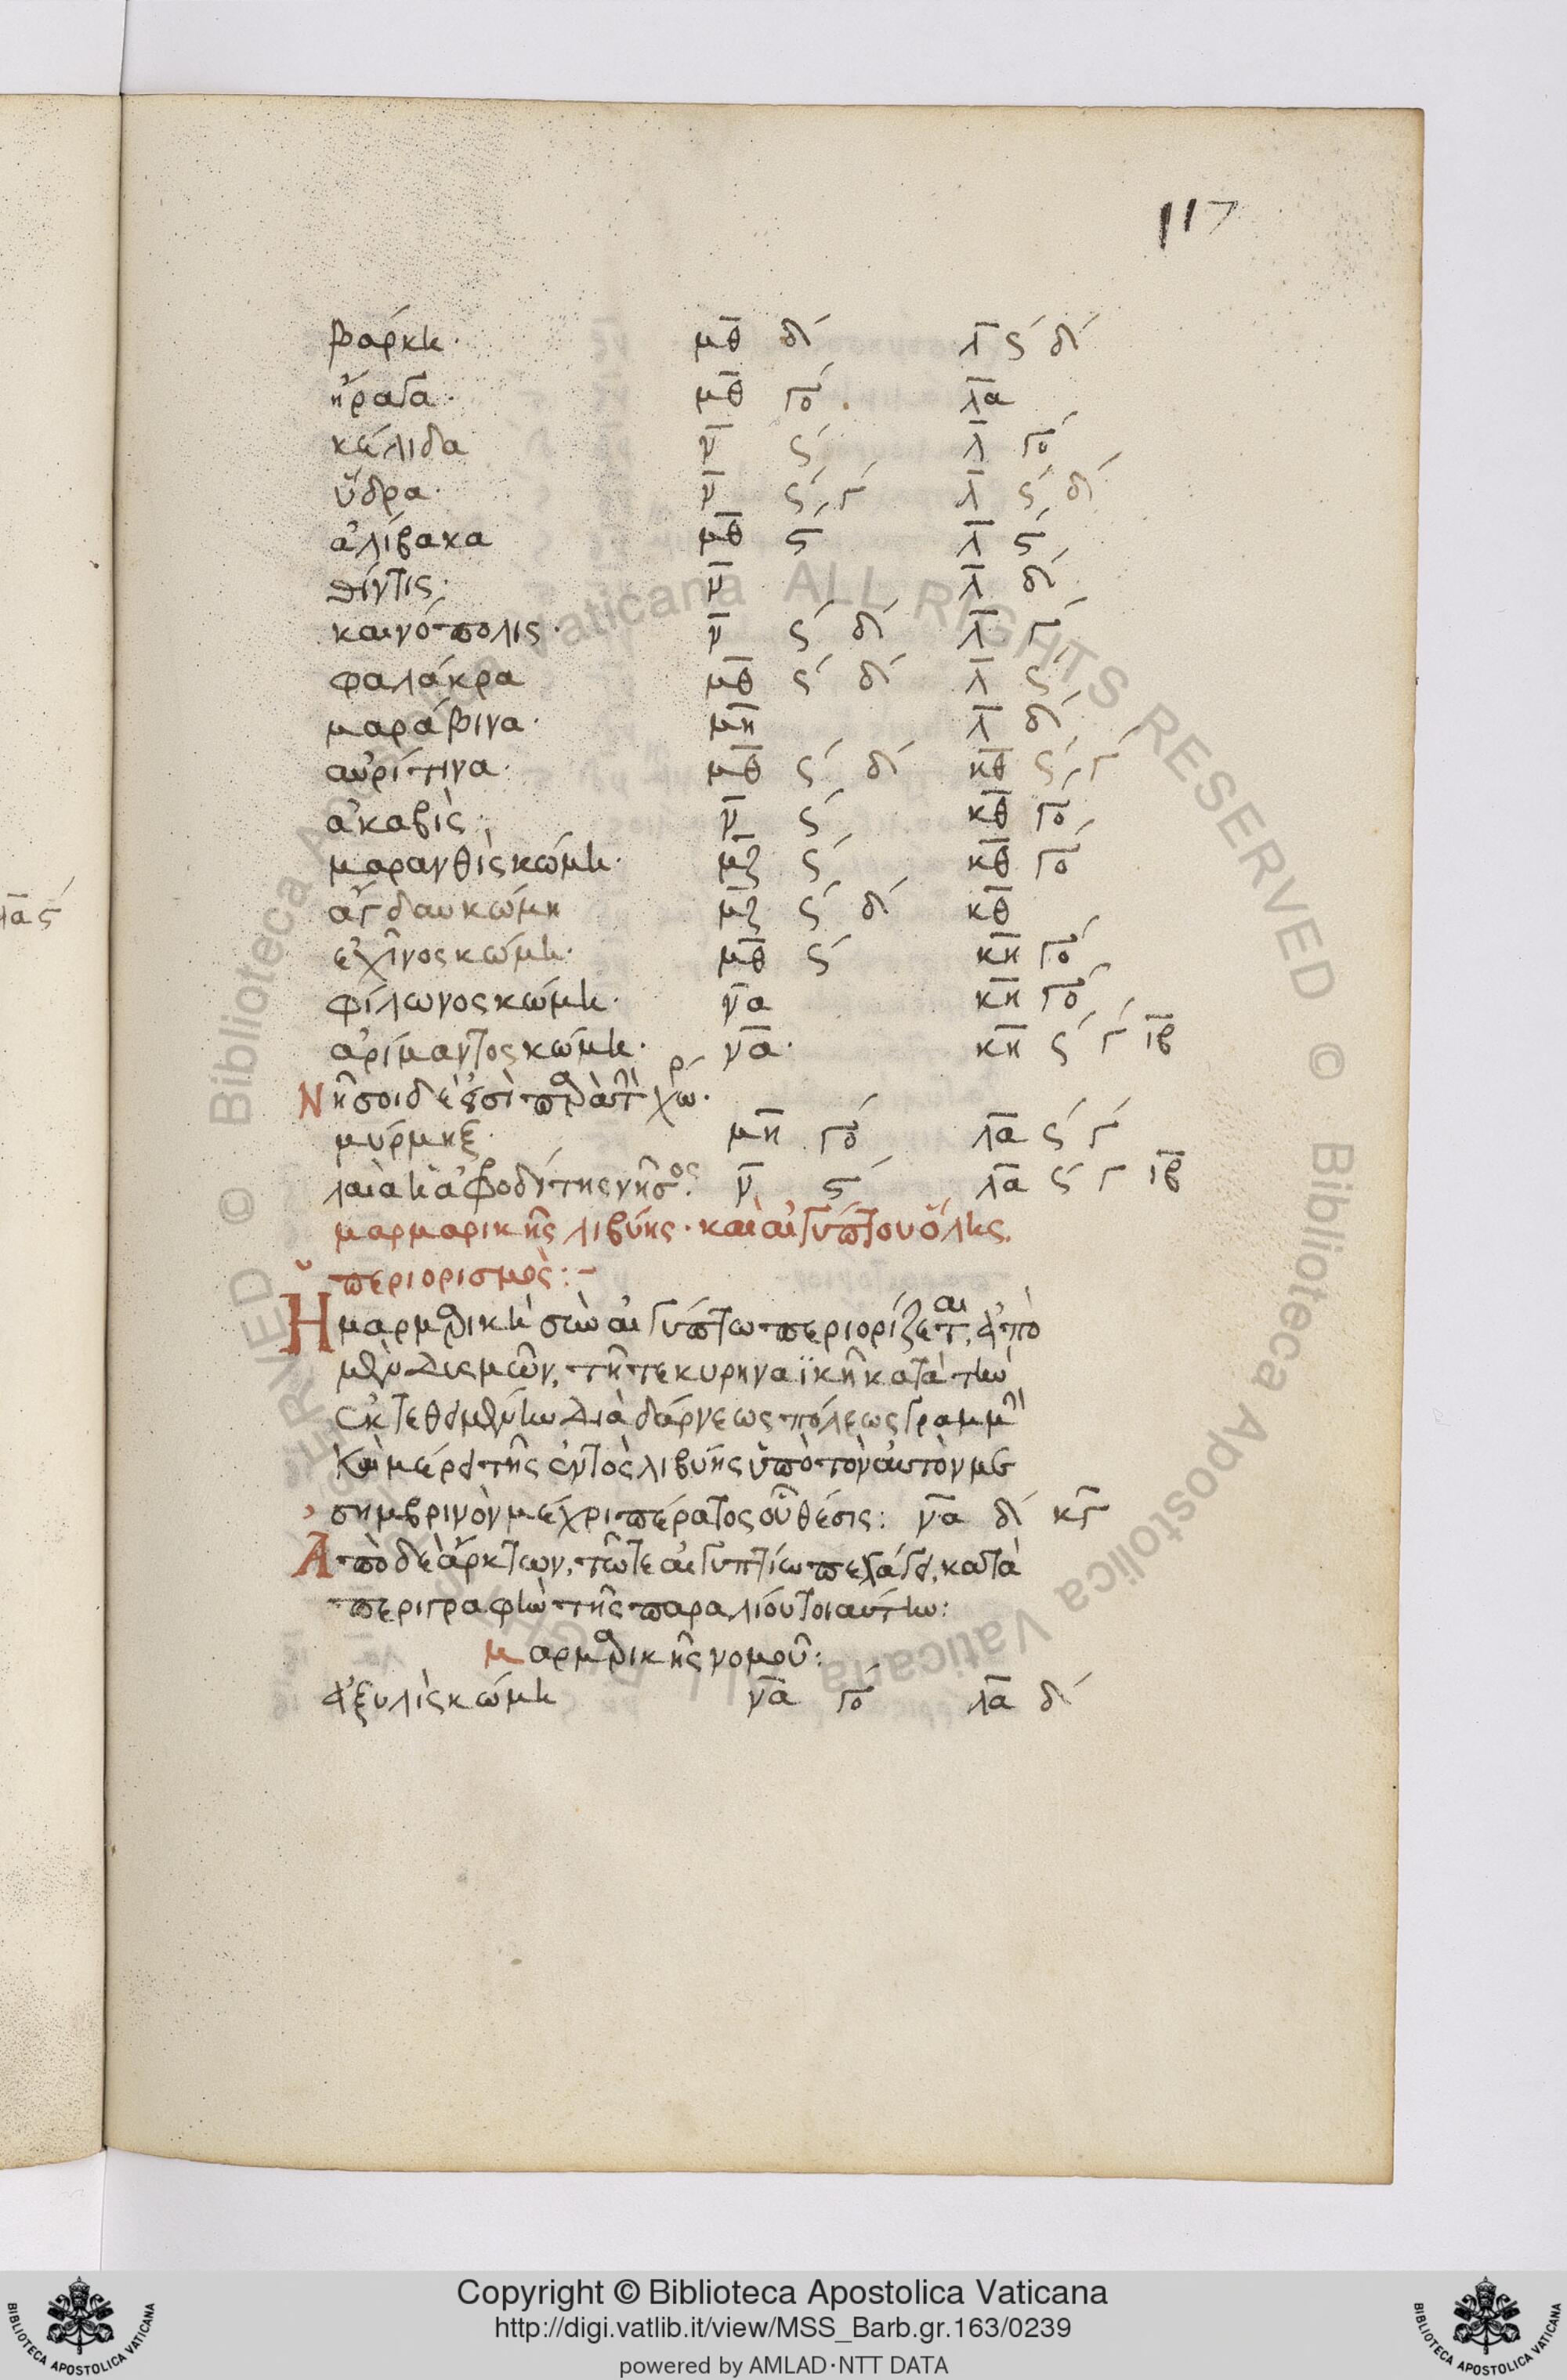 117
βάρκη· μθ δ´ λ ς´ δ´
ἤραγα· μθ γο´ λα
κέλιδα ν ς´ λ γο´
ὕδρα· ν ς´ γ´ λ ς´ δ´
ἀλίβακα μθ ς´ λ ς´
θίντις· ν λ δ´
καινόπολις· ν ς´ δ´ λ γ´
φαλάκρα μθ ς´ δ´ λ ς´
μαράβινα· μη λ δ´
αὐρίτινα· μθ ς´ δ´ κθ ς´ γ´
ἀκαβὶς· ν ς´ κθ γο´
μαρανθὶς κώμη· μζ ς´ κθ γο´
ἄγδαυ κώμη μζ ς´ δ´ κθ
ἐχῖνος κώμη· μθ ς´ κη γο´
φίλωνος κώμη· να κη γο´
ἀρίμαντος κώμη· να· κη ς´ γ´ ιβ
Νῆσοι δὲ εἰσὶ
μύρμηξ· μη γο´ λα ς´ γ´
λαιὰ ἢ ἀφροδίτης νῆσος· ν ς´ λα ς´ γ´ ιβ
μαρμαρικῆς λιβύης· καὶ αἰγύπτου ὅλης
περιορισμὸς:-
Η μαρμαρικὴ σὺν αἰγύπτω περιορίζεται, ἀπὸ
μὲν δυσμῶν, τῆ τε κυρηναϊκῆ κατὰ τὴν
ἐκτεθειμένην διὰ δάρνεως πόλεως γραμμὴν
Καὶ μέρει τῆς ἐντὸς λιβύης ὑπὸ τὸν αὐτὸν με
σημβρινὸν μέχρι πέρατος οὗ θέσις: να δ´ κγ
Ἀπὸ δὲ ἄρκτων, τῶ τε αἰγυπτίω πελάγει, κατὰ
περιγραφὴν τῆς παραλίου τοιαύτην:
μαρμαρικῆς νομοῦ:
ἀξυλὶς κώμη να γο´ λα δ´
λα ς´
Copyright © Biblioteca Apostolica Vaticana
http://digi.vatlib.it/view/MSS_Barb.gr.163/0239
powered by AMLAD·NTT DATA
BIBLIOTECA APOSTOLICA VATICANA
BIBLIOTECA APOSTOLICA VATICANA
© Biblioteca Apostolica Vaticana ALL RIGHTS RESERVED © Biblioteca Apostolica Vaticana ALL RIGHTS RESERVED